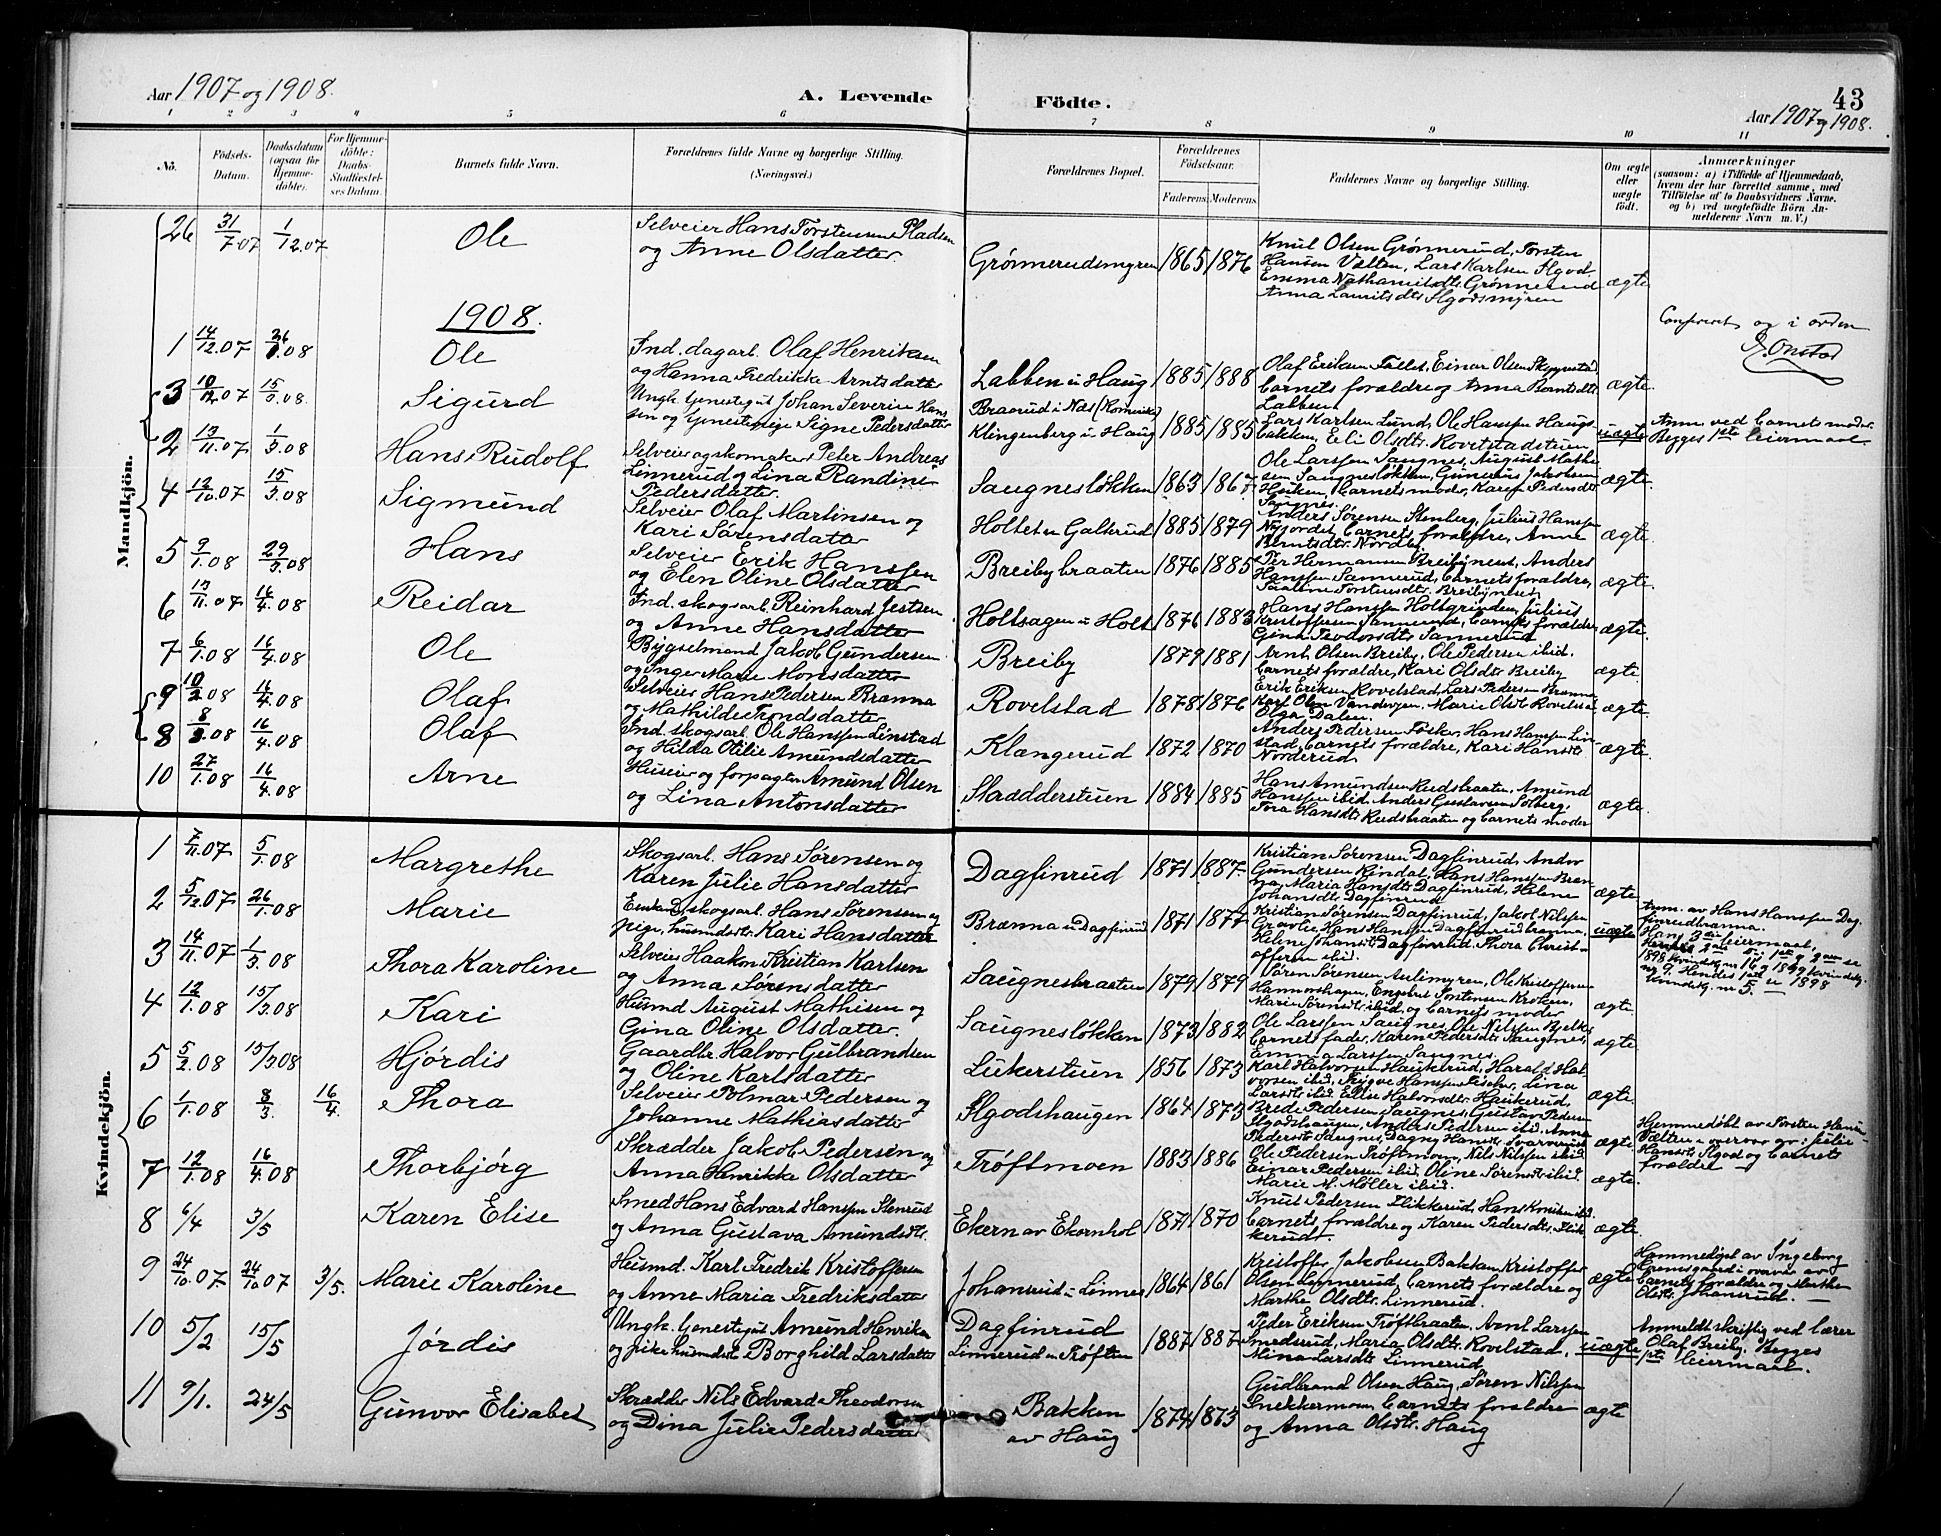 Aar 1907 og 1908.
A. Levende Födte.
43
Aar 1907 og 1908.
1 2 3 4 5 6 7 8 9 10 11
No.
Födsels-Datum.
Daabsdatum (ogsaa for Hjemmedöbte).
For Hjemmedöbte: Daabs-Stadfæstelses Datum.
Barnets fulde Navn.
Forældrenes fulde Navne og borgerlige Stilling. (Næringsvei.)
Forældrenes Bopæl.
Forældrenes Födselsaar.
Faderens. Moderens.
Faddernes Navne og borgerlige Stilling.
Om ægte eller uægte födt.
Anmærkninger
(saasom: a) i Tilfælde af Hjemmedaab, hvem der har forrettet samme, med Tilföielse af to Daabsvidners Navne, og b) ved uegtefödte Börn Anmelderens Navn m. V.)
Mandkjön.
26 31/7.07 1/12.07 Ole Selveier Hans Torstensen Pladsen og Anne Olsdatter. Grønnerudsmyren 1865 1876 Knut Olsen Grønnerud, Torsten Hansen Vælten, Lars Karlsen Ilgod. Emma Nathanielsdtr. Grønnerud Anna Lauritsdtr. Ilgodsmyren ægte
1908.
Confereret og i orden
Onstad
1 14/12.07 26/1.08 Ole Ind. dagarb. Olaf Henriksen og Hanna Fredrikke Arntsdatter Labben u Haug 1885 1888 Olaf Eriksen Tollet, Einar Olsen barnets forældre og Anna Berntsdtr. Labben. ægte
3 10/12.07 15/3.08 Sigurd Ungk. Johan Severin Hansen og Signe Pedersdatter Braarud i Næs Klingenberg u Haug 1885 1885 Lars Karlsen Lund, Ole Hanssen Haugsbakken, Eli Olsdtr. Rovelstadstuen uægte Anm. ved barnets moder Begges 1ste leiermaal
2 13/11.07 1/3.08 Hans Rudolf Selveier og skomaker Peter Andreas Linnerud og Lina Randine Pedersdatter. Saugnesløkken 1863 1867 Ole Larssen Saugnes, August Mathisen Saugnesløkken, barnets moder, Karen Pedersdtr. Saugnes. ægte
4 12/10.07 15/3.08 Sigmund Selveier Olaf Martinsen og Kari Sørensdatter Holtet u Galterud 1885 1879 Anders Sørensen Stenberg, Julius Hanssen Nyjordet, barnets forældre, Anne Berntsdtr. Nordby ægte
5 9/1.08 29/3.08 Hans Selveier Erik Hanssen og Elen Oline Olsdatter Breibybraaten 1876 1885 Per Hermansen Breibyneset, Anders Hanssen Sannerud, barnets forældre, Breibyneset. ægte
6 13/11.07 16/4.08 Reidar Ind. skogsarb. Reinhard Jestsen og Anne Hansdatter Holtsagen u Holt 1876 1883 Hans Hanssen Holtgrinden, Julius Kristoffersen Sannerud, barnets forældre Gina Teodorsdtr. Sannerud ægte.
7 6/1.08 16/4.08 Ole Bygselmand Jakob Gundersen og Inger Marie Monsdatter Breiby 1879 1881 Arnt Olsen Breiby, Ole Pedersen ibid. barnets forældre, Kari Olsdtr. Breiby ægte.
9 10/2.08 16/4.08 Olaf Selveier Hans Pedersen Brænna og Mathilde Trondsdatter Rovelstad 1878 1876 Erik Eriksen Rovelstad, Lars Pedersen Brænna Karl Olsen Marie Olsdtr. Rovelstad Olga Dalen. ægte.
8 8/2.08 16/4.08 Olaf Ind. skogsarb. Ole Hanssen Linstad og Hilda Otilie Amundsdatter Klangerud 1872 1870 Anders Pedersen Fosker, Hans Hanssen Linstad, barnets forældre, Kari Hansdtr. Norderud. ægte
10 27/1.08 16/4.08 Arne Huseier og forpagter Amund Olsen og Lina Antonsdatter Skrædderstuen 1884 1885 Hans Amundsen Rudsbraaten, Amund Hanssen ibid. Anders Gustavsen Solberg. Tora Hansdtr. Rudsbraaten og barnets moder ægte.
Kvindekjön.
1 7/11.07 5/1.08 Margrethe Skogsarb. Hans Sørensen og Karen Julie Hansdatter Dagfinrud 1871 1887 Kristian Sørensen Dagfinrud, Andor Gundersen Rindal, Hans Hanssen Brænna, Maria Hansdtr. Dagfinrud, Helene Johansdtr. Dagfinrud ægte.
2 5/12.07 26/1.08 Marie Enkem. skogsarb. Hans Sørensen og pige, husmdtr. Kari Hansdatter Brænna u Dagfinrud 1871 1877 Kristian Sørensen Dagfinrud, Jakob Nilssen Gravlie, Hans Hanssen Dagfinrudbrænna, Helene Johansdtr. Dagfinrud. Thora Christoffersen ibid. uægte Anm. av Hans Hanssen Dagfinrudbrænna. Hans 3die leiermaal, 1898 kvindek. nr 16 og 1899 kvindek. nr 9. Hendes 1ste se 1898 kvindekj. nr 5.
3 14/11.07 1/3.08 Thora Karoline Selveier Haakon Kristian Karlsen og Anna Sørensdatter Saugnesbraaten 1879 1879 Søren Sørensen Aulimyren, Ole Kristoffersen Engebret Torstensen Kroken, Marie Sørensdtr. ibid. og barnets moder ægte.
4 12/1.08 15/3.08 Kari Husmd August Mathisen og Gina Oline Olsdatter. Saugnesløkken 1873 1882 Ole Larssen Saugnes, Ole Nilssen Bjelke, barnets fader, Karen Pedersdtr. Saugnes, Emma Larssen Saugnes. ægte.
5 5/2.08 15/3.08 Hjørdis Gaardbr. Halvor Gulbrandsen og Oline Karlsdatter Lukerstuen 1856 1873 Karl Halvorsen Haukerud, Harald Halvorsen ibid, Trygve Hanssen Fischer, Lina Larsdtr. ibid. Ellie Halvorsdtr. Haukerud, ægte.
6 1/1.08 8/3 16/4 Thora Selveier Polmar Pedersen og Johanne Mathiasdatter Ilgodshaugen 1864 1873 Brede Pedersen Saugnes, Gustav Pedersen Ilgodshaugen, Anders Pedersen ibid. Anne Pedersdtr. Saugnes, Dagny Hansdtr. ægte. Hjemmedøbt av Torsten Hansen Vælten i overvær av: Julie Hansdtr. Ilgod og barnets forældre
7 12/1.08 16/4.08 Thorbjørg Skrædder Jakob Pedersen og Anna Henrikke Olsdatter Trøftmoen 1883 1886 Ole Pedersen Trøftmoen, Nils Nilssen ibid. Einar Pedersen ibid, Oline Sørensdtr. ibid. Marie M. Møller ibid. ægte.
8 6/4 3/5 Karen Elise Smed Hans Edvard Hanssen Stenrud og Anna Gustava Amundsdtr. Ekern av Ekornhol 1871 1870 Knut Pedersen Ilikkerud, Hans Knutsen ibid. barnets forældre og Karen Pedersdtr. Ilikkerud. ægte.
9 24/10.07 24/10.07 3/5. Marie Karoline Husmd. Karl Fredrik Kristoffersen og Anne Maria Fredriksdatter Johansrud u Linnes 1864 1861 Kristoffer Jakobsen Bakken, Kristoffer Olsen Linnerud, barnets forældre og Marthe Olsdtr. Linnerud. ægte Hjemmedøbt av Ingeborg i overvær av barnets forældre og Marthe Olsdtr. Johansrud.
10 5/2 15/5 Jørdis Ungk. tjenestegut Amund Henriksen og pike husmdtr. Borghild Larsdatter Dagfinrud Linnerud u Trøften 1887 1887 Peder Eriksen Trøftbraaten, Arnt Larssen Smedsrud, Maria Olsdtr. Rovelstad, Mina Larsdtr. Linnerud. uægte Anmeldt skriftlig ved lærer Olaf Breiby, Begges 1ste leiermaal.
11 9/1. 24/5 Gunvor Elisabet Skrædder Nils Edvard Theodorsen og Dina Julie Pedersdatter Bakken av Haug 1874 1873 Gudbrand Olsen Haug, Søren Nilssen Snekkermoen, barnets forældre og Anna Olsdtr. Haug ægte